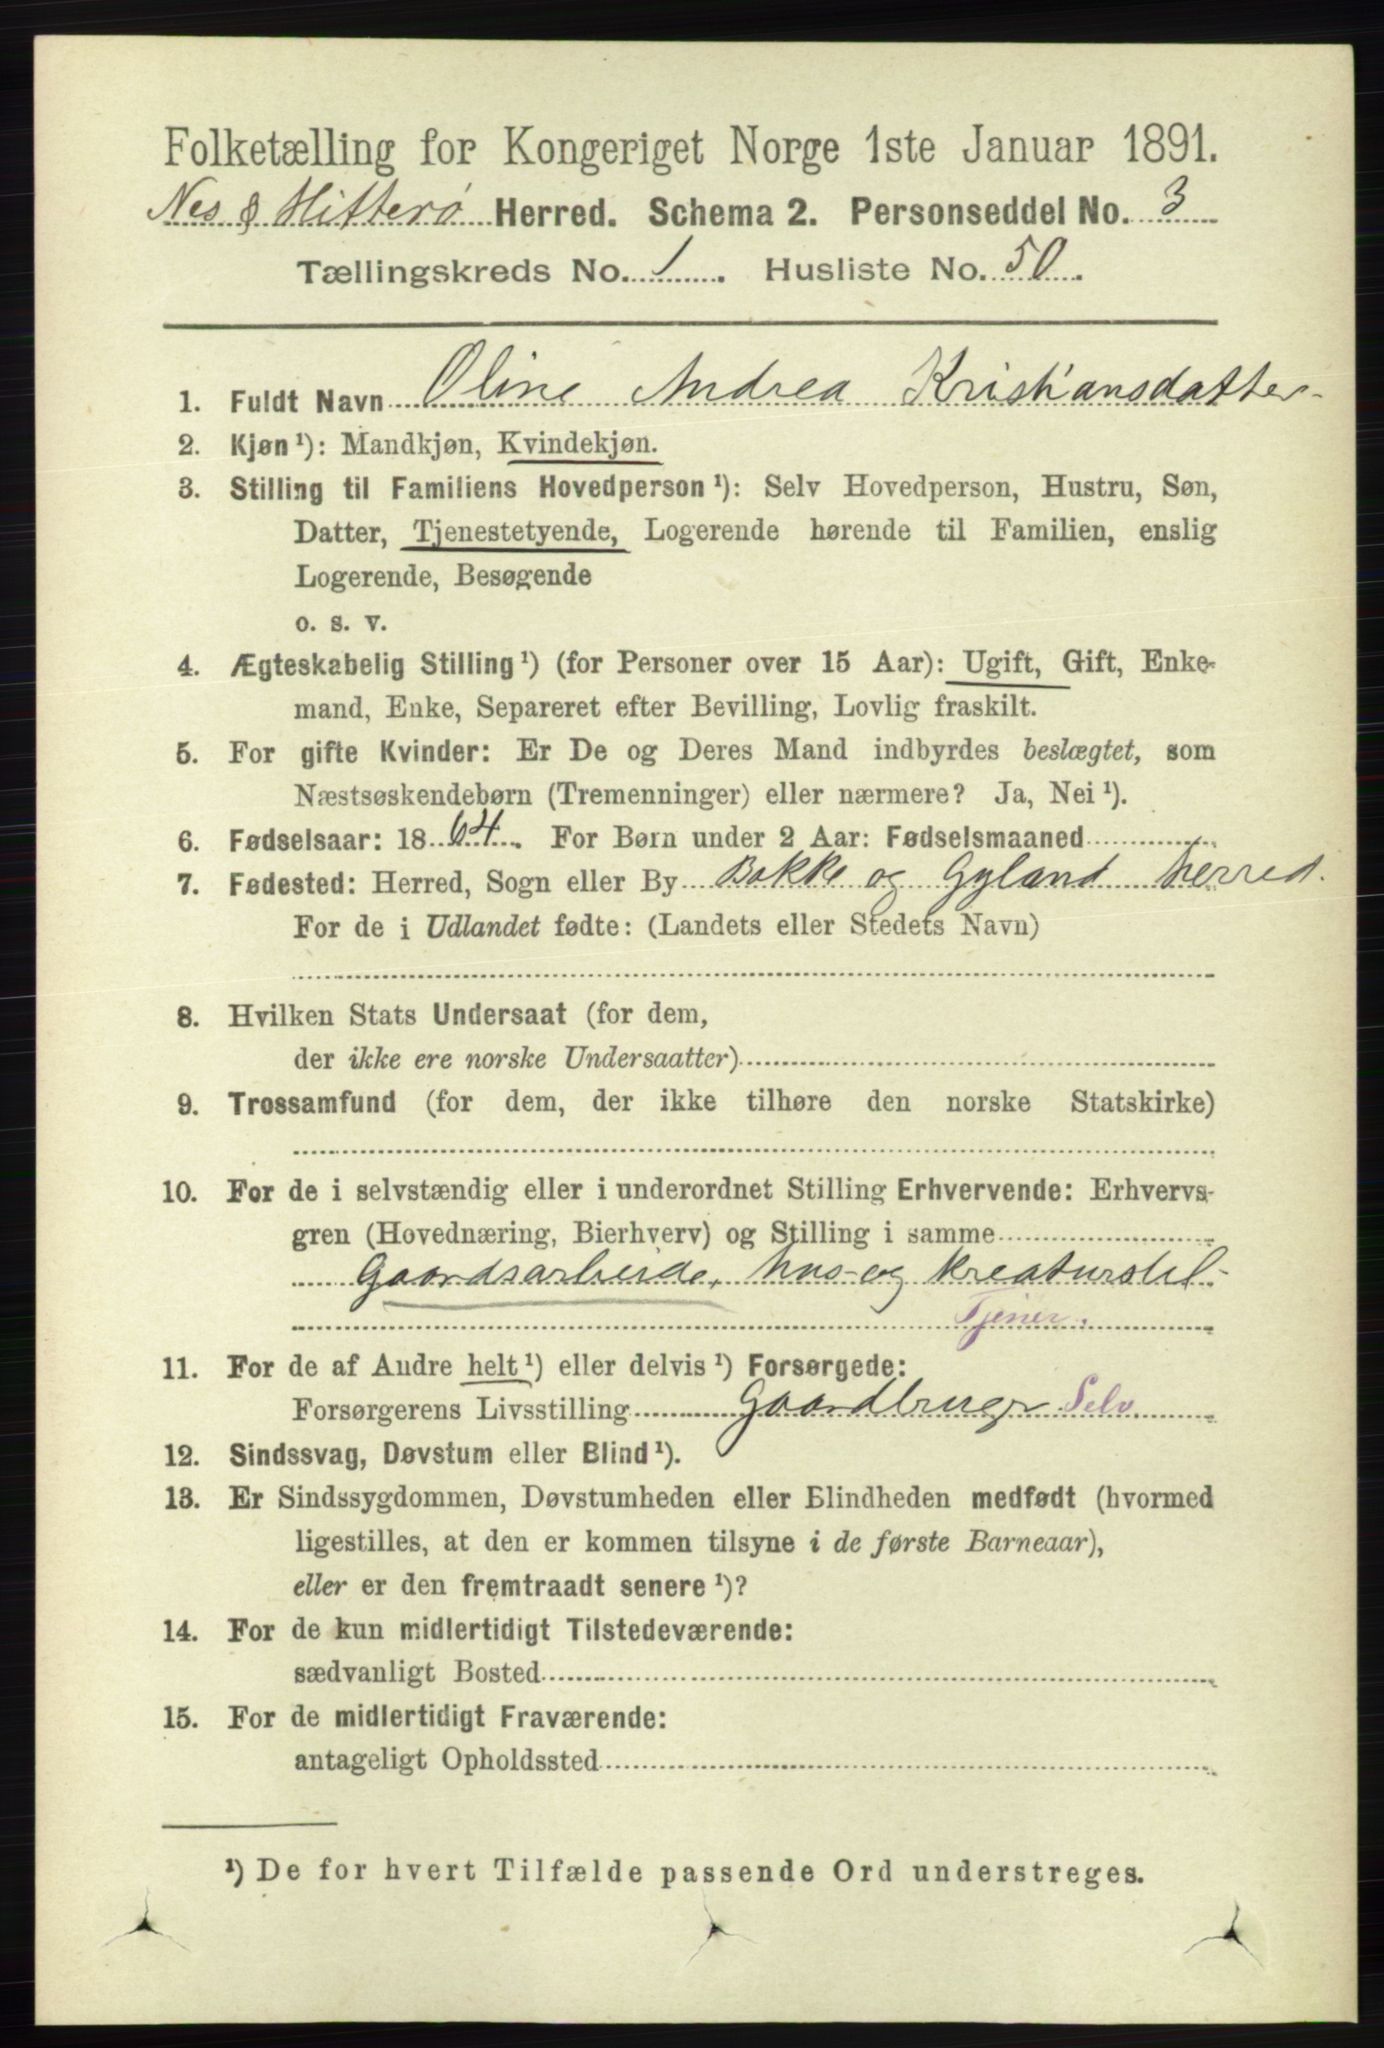 Folketælling for Kongeriget Norge 1ste Januar 1891.
Nes & Hitterø Herred. Schema 2. Personseddel No. 3
Tællingskreds No. 1. Husliste No. 50.
1. Fuldt Navn Oline Andrea Kristiansdatter
2. Kjøn ¹): Mandkjøn, Kvindekjøn.
3. Stilling til Familiens Hovedperson ¹): Selv Hovedperson, Hustru, Søn,
Datter, Tjenestetyende, Logerende hørende til Familien, enslig
Logerende, Besøgende
o. s. v.
4. Ægteskabelig Stilling ¹) (for Personer over 15 Aar): Ugift, Gift, Enke-
mand, Enke, Separeret efter Bevilling, Lovlig fraskilt.
5. For gifte Kvinder: Er De og Deres Mand indbyrdes beslægtet, som
Næstsøskendebørn (Tremenninger) eller nærmere? Ja, Nei ¹).
6. Fødselsaar: 1864. For Børn under 2 Aar: Fødselsmaaned
7. Fødested: Herred, Sogn eller By Bakke og Gyland herred.
For de i Udlandet fødte: (Landets eller Stedets Navn)
8. Hvilken Stats Undersaat (for dem,
der ikke ere norske Undersaatter)
9. Trossamfund (for dem, der ikke tilhøre den norske Statskirke)
10. For de i selvstændig eller i underordnet Stilling Erhvervende: Erhvervs-
gren (Hovednæring, Bierhverv) og Stilling i samme
Gaardsarbeide, hus- og kreaturstel-
Tjener.
11. For de af Andre helt ¹) eller delvis ¹) Forsørgede:
Forsørgerens Livsstilling Gaardbruger Selv
12. Sindssvag, Døvstum eller Blind ¹).
13. Er Sindssygdommen, Døvstumheden eller Blindheden medfødt (hvormed
ligestilles, at den er kommen tilsyne i de første Barneaar),
eller er den fremtraadt senere ¹)?
14. For de kun midlertidigt Tilstedeværende:
sædvanligt Bosted
15. For de midlertidigt Fraværende:
antageligt Opholdssted
¹) De for hvert Tilfælde passende Ord understreges.